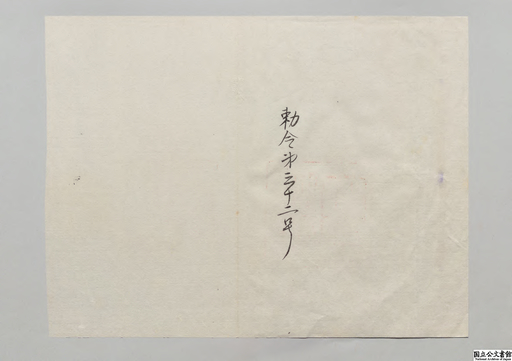 勅令第三十二号
国立公文書館
National Archives of Japan